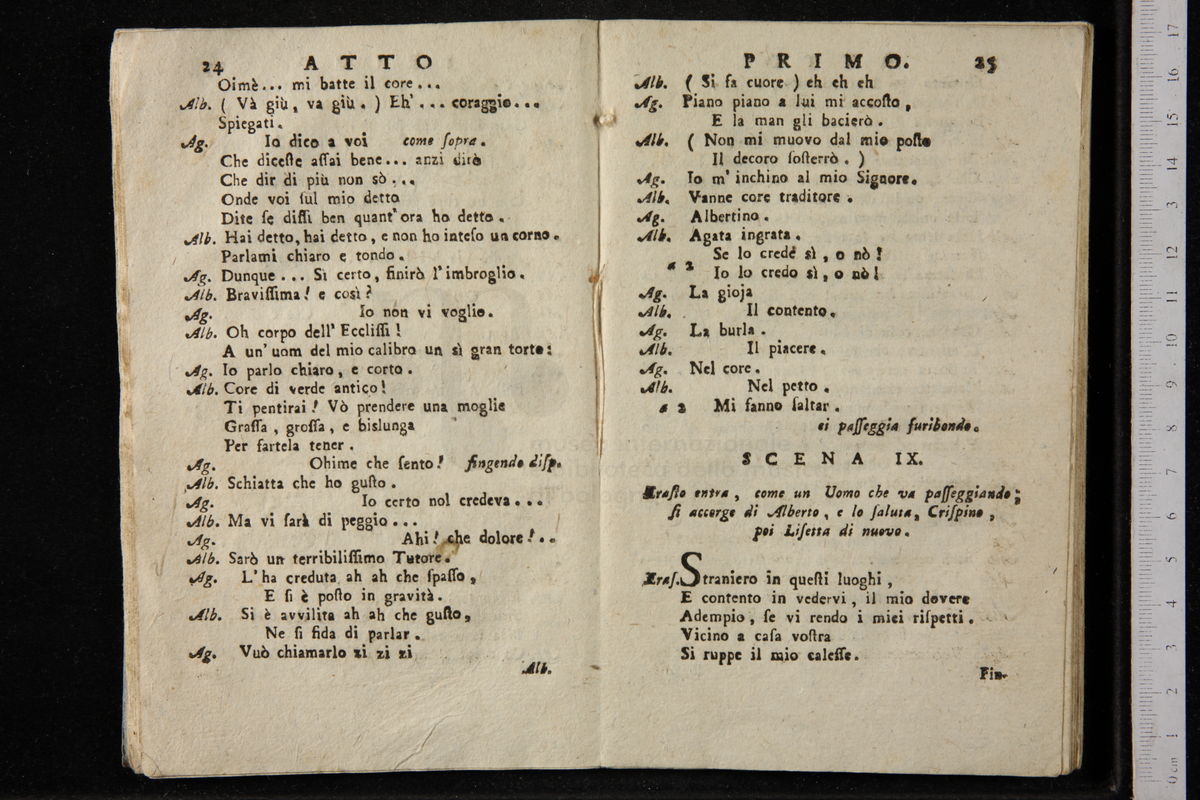 24 ATTO
Oimè... mi batte il core...
Alb. ( Và giù, va giù. ) Eh'... coraggio...
Spiegati.
Ag. Io dico a voi come ſopra.
Che diceſte aſſai bene... anzi dirò
Che dir di più non sò...
Onde voi ſul mio detto
Dite ſe diſſi ben quant' ora ho detto.
Alb. Hai detto, hai detto, e non ho inteſo un corno.
Parlami chiaro e tondo.
Ag. Dunque... Sì certo, finirò l'imbroglio.
Alb. Braviſſima! e così?
Ag. Io non vi voglio.
Alb. Oh corpo dell' Eccliſſi!
A un' uom del mio calibro un sì gran torto:
Ag. Io parlo chiaro, e corto.
Alb. Core di verde antico!
Ti pentirai! Vò prendere una moglie
Graſſa, groſſa, e bislunga
Per fartela tener.
Ag. Ohime che ſento! fingendo diſp.
Alb. Schiatta che ho guſto.
Ag. Io certo nol credeva...
Alb. Ma vi ſarà di peggio...
Ag. Ahi! che dolore!..
Alb. Sarò un terribiliſſimo Tutore.
Ag. L' ha creduta ah ah che ſpaſſo,
E ſi è poſto in gravità.
Alb. Si è avvilita ah ah che guſto,
Ne ſi fida di parlar.
Ag. Vuò chiamarlo zi zi zi
Alb.
PRIMO. 25
Alb. ( Si fa cuore ) eh eh eh
Ag. Piano piano a lui mi accoſto,
E la man gli bacierò.
Alb. ( Non mi muovo dal mio poſto
Il decoro ſoſterrò. )
Ag. Io m' inchino al mio Signore.
Alb. Vanne core traditore.
Ag. Albertino.
Alb. Agata ingrata.
Se lo crede sì, o nò!
a 2
Io lo credo sì, o nò!
Ag. La gioja
Alb. Il contento.
Ag. La burla.
Alb. Il piacere.
Ag. Nel core.
Alb. Nel petto.
a 2 Mi fanno ſaltar.
ei paſſeggia furibondo.
SCENA IX.
Eraſto entra, come un Uomo che va paſſeggiando;
ſi accorge di Alberto, e lo ſaluta, Criſpino,
poi Liſetta di nuovo.
Eraſ. Straniero in queſti luoghi,
E contento in vedervi, il mio dovere
Adempio, ſe vi rendo i miei riſpetti.
Vicino a caſa voſtra
Si ruppe il mio caleſſe.
Fin-